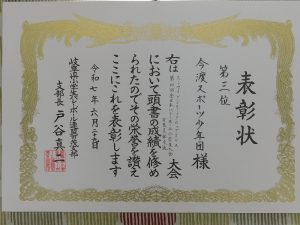 表彰状
第三位
今渡スポーツ少年団様
右は
大会
において頭書の成績を修め
られたのでその栄誉を讃え
ここにこれを表彰します
令和七年六月
岐阜県小学生バレーボール連盟可茂支部
支部長 戸谷真一